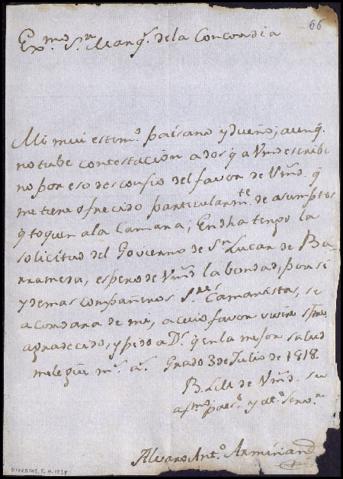 66
Ex.mo S.or Marq.s de la Concordia
Mi mui estim.o paisano y dueño; aunq.
no tube contestacion a dos q.e a Vmd escribi
no por eso desconfio del favor de Vmd. q.
me tiene ofrecido particularm.te de asumptos
q toquen ala Camara; En dha tengo la
solicitud del Govierno de S.n Lucar de Ba
rrameda, espero de Vmd la bondad, por si
y demas compañeros S.res Camaristas, se
acordara de mi, a cuio favor vivire s
agradecido, y pido a D.s q en la mejor salud
me le gue m.s a.s Grado 3 de Julio de 1818.
B. L. M. de Vmd. su
af.mo pais.o y at. Serv.r
Alvaro Ant.o Armiñan
DIVERSOS,